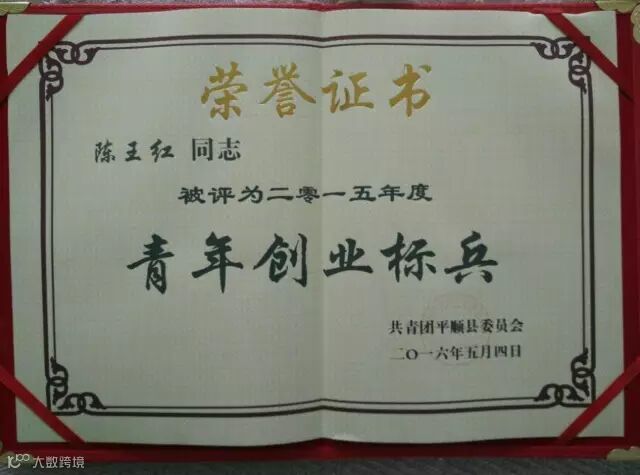 荣誉证书
陈王红 同志
被评为二零一五年度
青年创业标兵
共青团平顺县委员会
二〇一六年五月四日
大数跨境